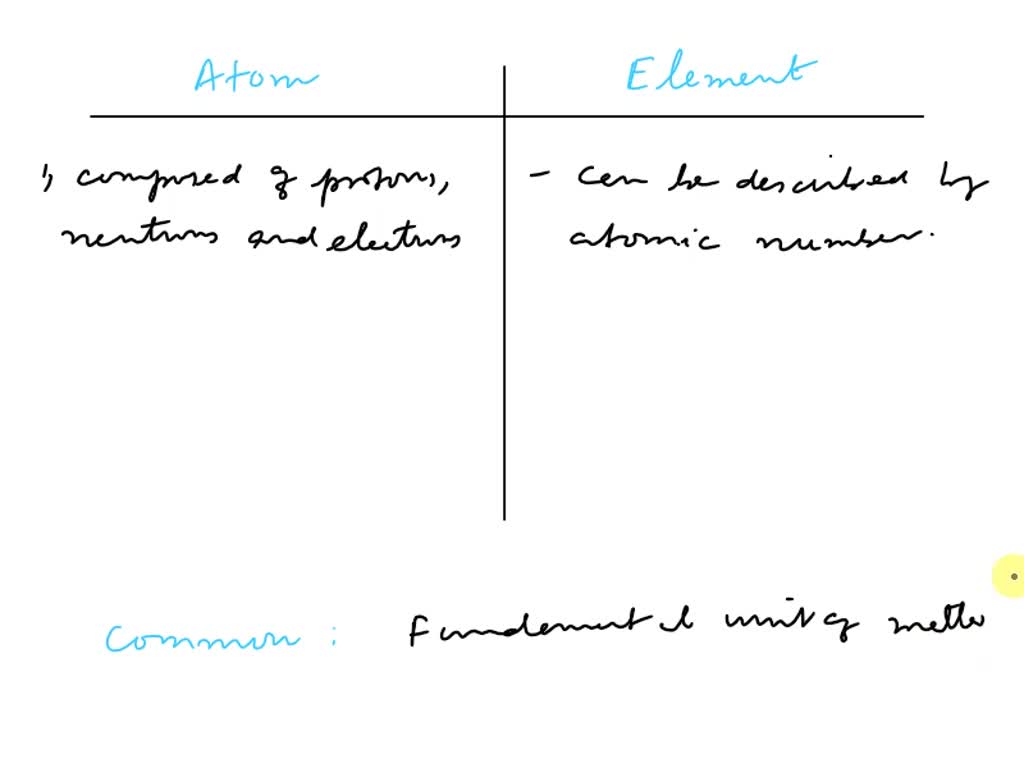 Atom Element
1, composed of protons,
neutrons and electrons
- can be described by
atomic number.
Common : Fundamental unit of matter